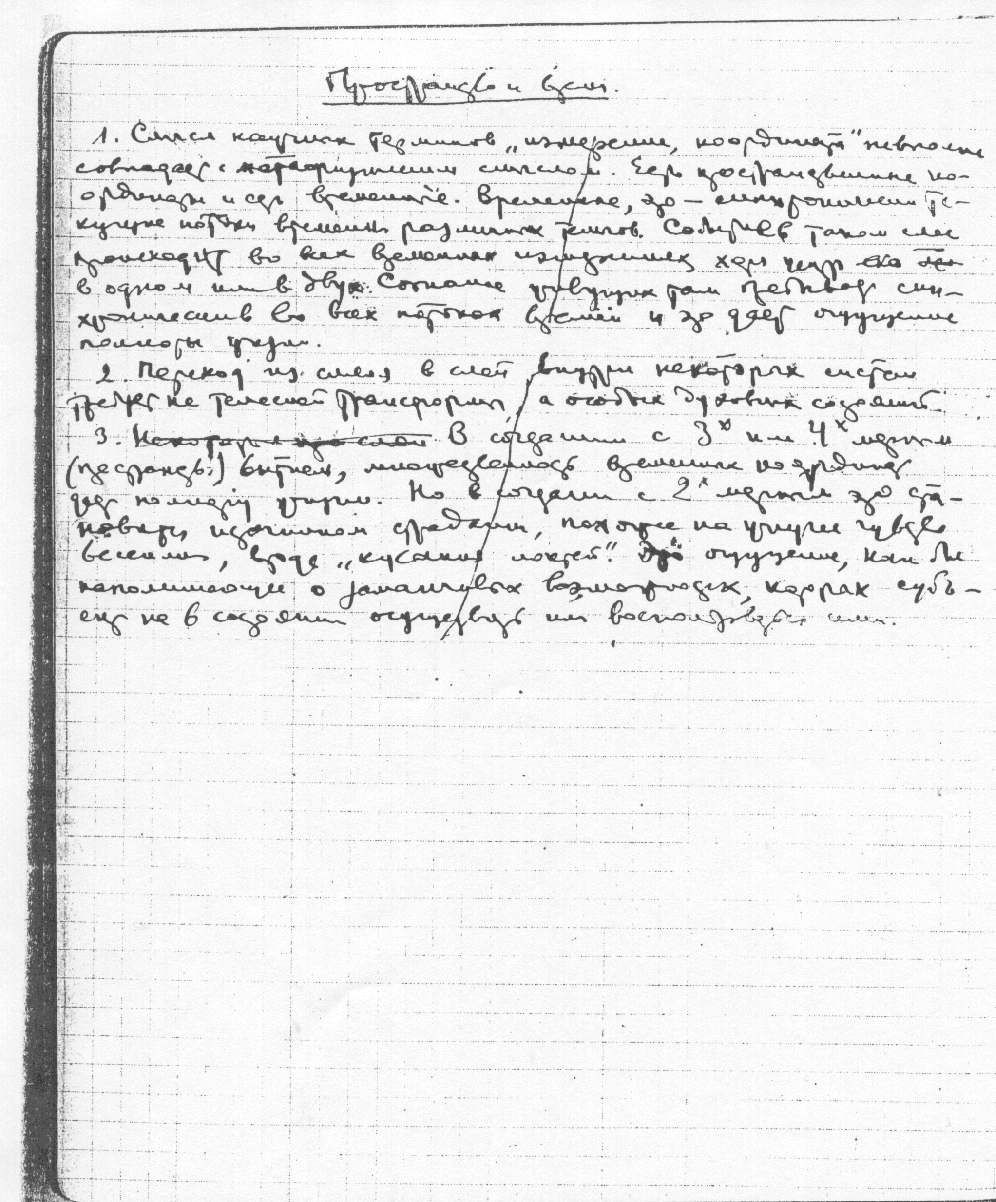 Пространство и время.
1. Смысл научных терминов „измерение, координата" не вполне
совпадает с метаисторическим смыслом. Есть пространственные ко-
ординаты и есть временные. Временные, это – синхронически те-
кущие потоки времени различных темпов. События в таком слое
происходят во всех временных измерениях, хотя центр его
в одном или в двух. Сознание живущих там действует син-
хронически во всех потоках времени и это дает ощущение
полноты жизни.
2. Переход из слоя в слой внутри некоторых систем
требует не телесной трансформы, а особых духовных состояний.
3. В создании с 3х или 4х мерным
(пространств.) бытием, множественность временных координат
дает полноту жизни. Но в создании с 2х мерным это ста-
новится источником страдания, похожее на жгучее чувство
бессилия, вроде „кусания локтей". Это ощущение, как бы
напоминающее о заманчивых возможностях, которых субъ-
ект не в состоянии осуществить или воспользоваться ими.